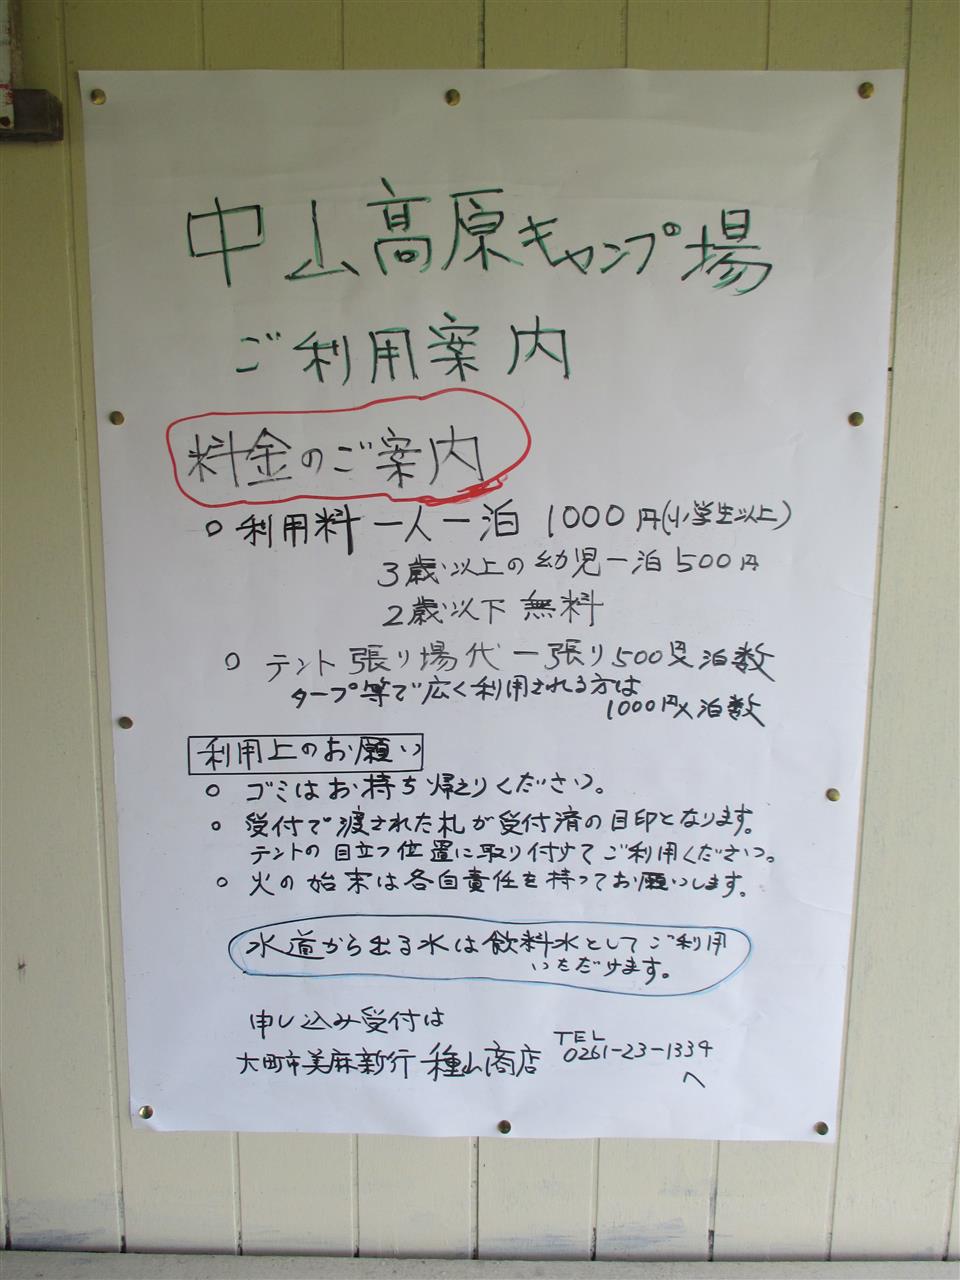 中山高原キャンプ場
ご利用案内
料金のご案内
○ 利用料 一人一泊 1000円(小学生以上)
3歳以上の幼児一泊500円
2歳以下 無料
○ テント張り場代 一張り500円×泊数
タープ等で広く利用される方は
1000円×泊数
利用上のお願い
○ ゴミはお持ち帰りください。
○ 受付で渡された札が受付済の目印となります。
テントの目立つ位置に取り付けてご利用ください。
○ 火の始末は各自責任を持ってお願いします。
水道から出る水は飲料水としてご利用
いただけます。
申し込み受付は
大町市美麻新行 種山商店 TEL 0261-23-1334
へ